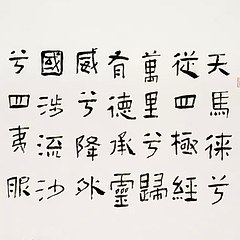 天馬徠兮
從四極經
萬里兮歸
有德承靈
威兮降外
國涉流沙
兮四夷服